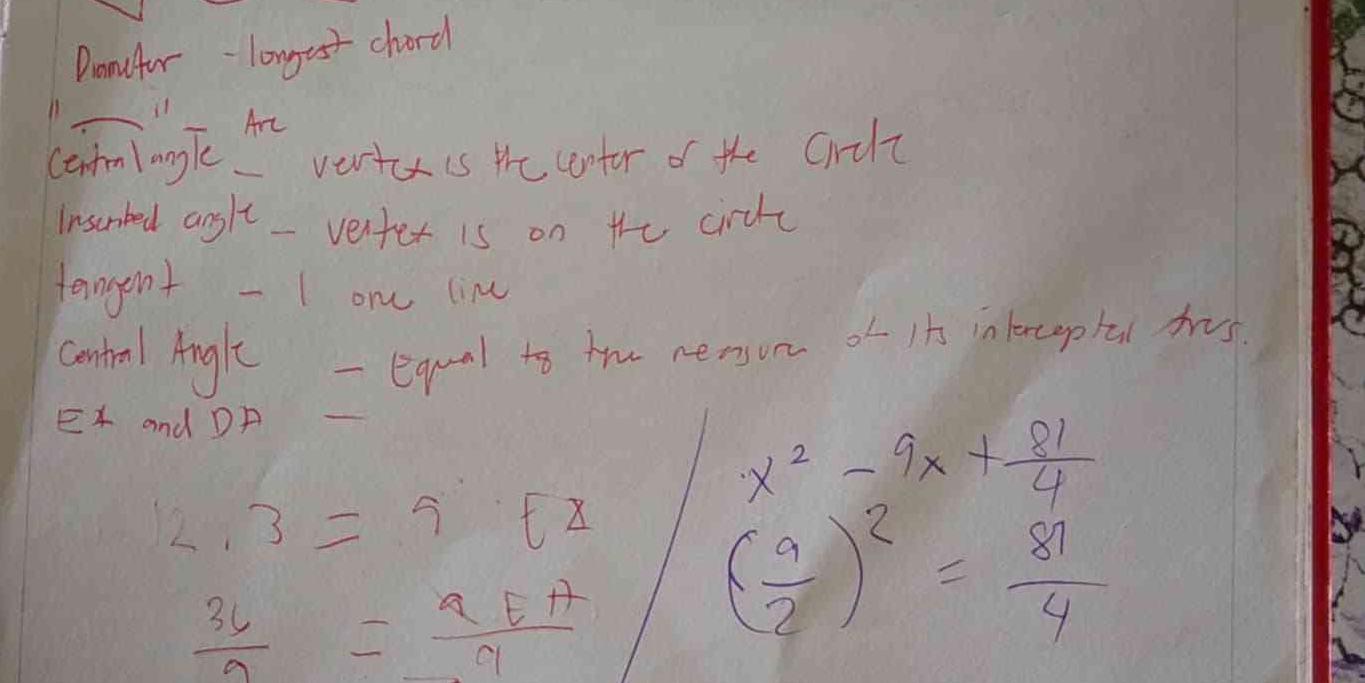 Diameter - longest chord
"⌒" - Arc
Central angle - vertex is the center of the Circle
Inscribed angle - vertex is on the circle
tangent - 1 one line
Central Angle - Equal to the measure of its intercepted Arcs.
EA and DA -
12 . 3 = 9 . EA
36/9 = 9EA/9
x² - 9x + 81/4
(9/2)² = 81/4